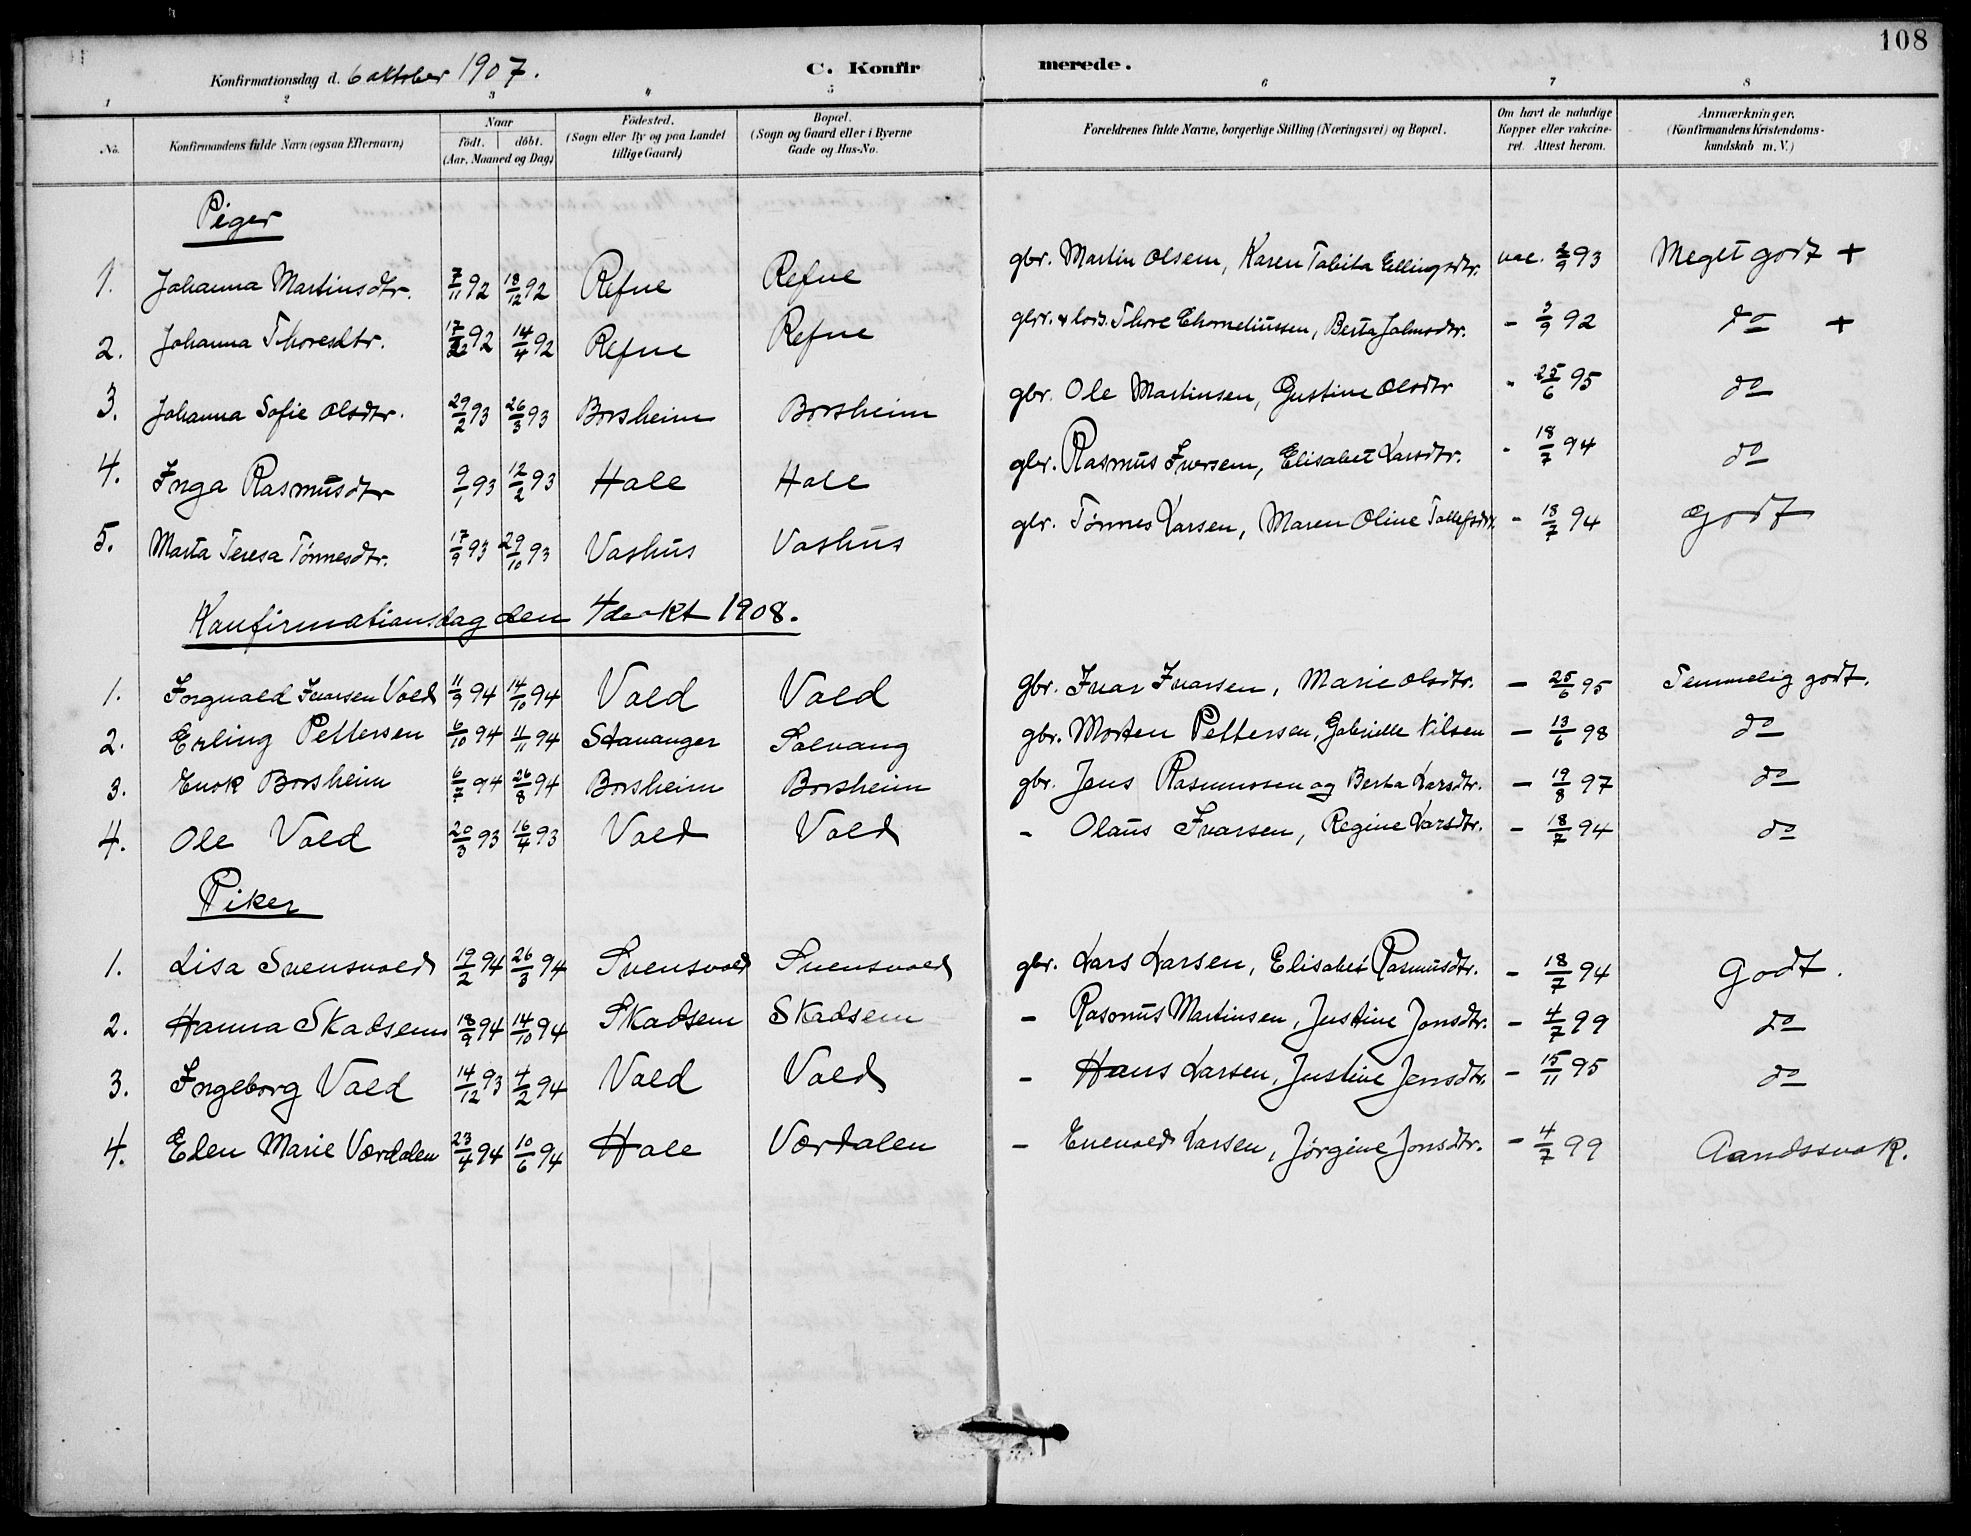 108
Konfirmationsdag d. 6 oktober 1907. C. Konfirmerede.
1 2 3 4 5 6 7 8
No. Konfirmandens fulde Navn (ogsaa Efternavn) Naar födt. döbt. (Aar, Maaned og Dag) Födested. (Sogn eller By og paa Landet tillige Gaard) Bopæl. (Sogn og Gaard eller i Byerne Gade og Hus-No. Forældrenes fulde Navne, borgerlige Stilling (Næringsvei) og Bopæl. Om havt de naturlige Kopper eller vakcineret. Attest herom. Anmærkninger. (Konfirmandens Kristendomskundskab m. V.)
Piger
1. Johanna Martinsdtr. 7/11 92 18/12 92 Refne Refne gbr. Martin Olsen, Karen Tabita Ellingsdtr. vac. 2/9 93 Meget godt +
2. Johanna Thoresdtr. 92 14/4 92 Refne Refne Thore Berta Johnsdtr. - 92 do +
3. Johanna Sofie Olsdtr. 29/2 93 26/3 93 Borsheim Borsheim gbr. Ole Martinsen, Gustine Olsdtr - 25/6 95 do
4. Inga Rasmusdtr 9/1 93 12/2 93 Hole Hole gbr. Rasmus Iversen, Elisabet Larsdtr. - 18/7 94 do
5. Marta Teresa Tönnesdtr. 17/9 93 29/10 93 Vashus Vashus gbr. Tönnes Larsen, Maren Oline Tollefsdtr. - 18/7 94 Godt
Konfirmationsdag den 4de okt 1908.
1. Ingvald Ivarsen Vold 11/9 94 14/10 94 Vold Vold gbr. Ivar Ivarsen, Marie Olsdtr. - 25/6 95 Temmelig godt.
2. Erling Pettersen 6/10 94 11 94 Stavanger Solvang gbr. Morten Pettersen, Gabrielle Nilsen - 13/6 98 do
3. Enok Borsheim 6/7 94 26/8 94 Borsheim Borsheim gbr. Jens Rasmussen og Berta Larsdtr. - 19/8 97 do
4. Ole Vold 20/3 93 16/4 93 Vold Vold - Olaus Ivarsen, Regine Larsdtr. - 18/7 94 do
Piker
1. Lisa Svensvold 19/2 94 26/3 94 Svensvold Svensvold gbr. Lars Larsen, Elisabet Rasmusdtr. - 18/7 94 Godt.
2. Hanna Skadsem 18/9 94 14/10 94 Skadsem Skadsem - Rasmus Martinsen, Justine Jonsdtr. - 4/7 99 do
3. Ingeborg Vold 14/12 93 4/2 94 Vold Vold - Hans Larsen, Justine Jensdtr. - 15/11 95 do
4. Elen Marie Værdalen 23/4 94 10/6 94 Hole Værdalen - Enevold Larsen, Jørgine Jonsdtr. - 4/7 99 Aandssvak.